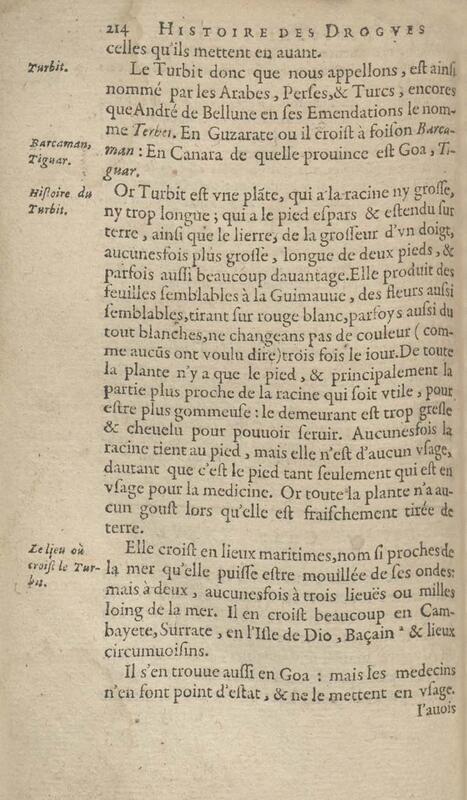 214 HISTOIRE DES DROGVES
celles qu'ils mettent en auant.
Turbit.
Le Turbit donc que nous appellons, eſt ainſi
nommé par les Arabes, Perſes, & Turcs, encores
que André de Bellune en ſes Emendations le nom-
me Terbet. En Guzarate ou il croiſt à foiſon Barca-
Barcaman,
man : En Canara de quelle prouince eſt Goa, Ti-
Tiguar.
guar.
Hiſtoire du
Or Turbit eſt vne plãte, qui a la racine ny groſſe,
Turbit.
ny trop longue ; qui a le pied eſpars & eſtendu ſur
terre, ainſi que le lierre, de la groſſeur d'vn doigt,
aucunesfois plus groſſe, longue de deux pieds, &
parfois auſſi beaucoup dauantage. Elle produit des
feuilles ſemblables à la Guimauue, des fleurs auſſi
ſemblables, tirant ſur rouge blanc, parfoys auſſi du
tout blanches, ne changeans pas de couleur ( com-
me aucũs ont voulu dire) trois fois le iour. De toute
la plante n'y a que le pied, & principalement la
partie plus proche de la racine qui ſoit vtile, pour
eſtre plus gommeuſe : le demeurant eſt trop greſle
& cheuelu pour pouuoir ſeruir. Aucunesfois la
racine tient au pied, mais elle n'eſt d'aucun vſage,
dautant que c'eſt le pied tant ſeulement qui eſt en
vſage pour la medicine. Or toute la plante n'a au-
cun gouſt lors qu'elle eſt fraiſchement tirée de
terre.
Le lieu où
Elle croiſt en lieux maritimes, nom ſi proches de
croiſt le Tur-
la mer qu'elle puiſſe eſtre mouillée de ſes ondes:
bit.
mais à deux, aucunesfois à trois lieuës ou milles
loing de la mer. Il en croiſt beaucoup en Cam-
bayete, Surrate, en l'Iſle de Dio, Baçain ª & lieux
circumuoiſins.
Il s'en trouue auſſi en Goa : mais les medecins
n'en font point d'eſtat, & ne le mettent en vſage.
I'auois